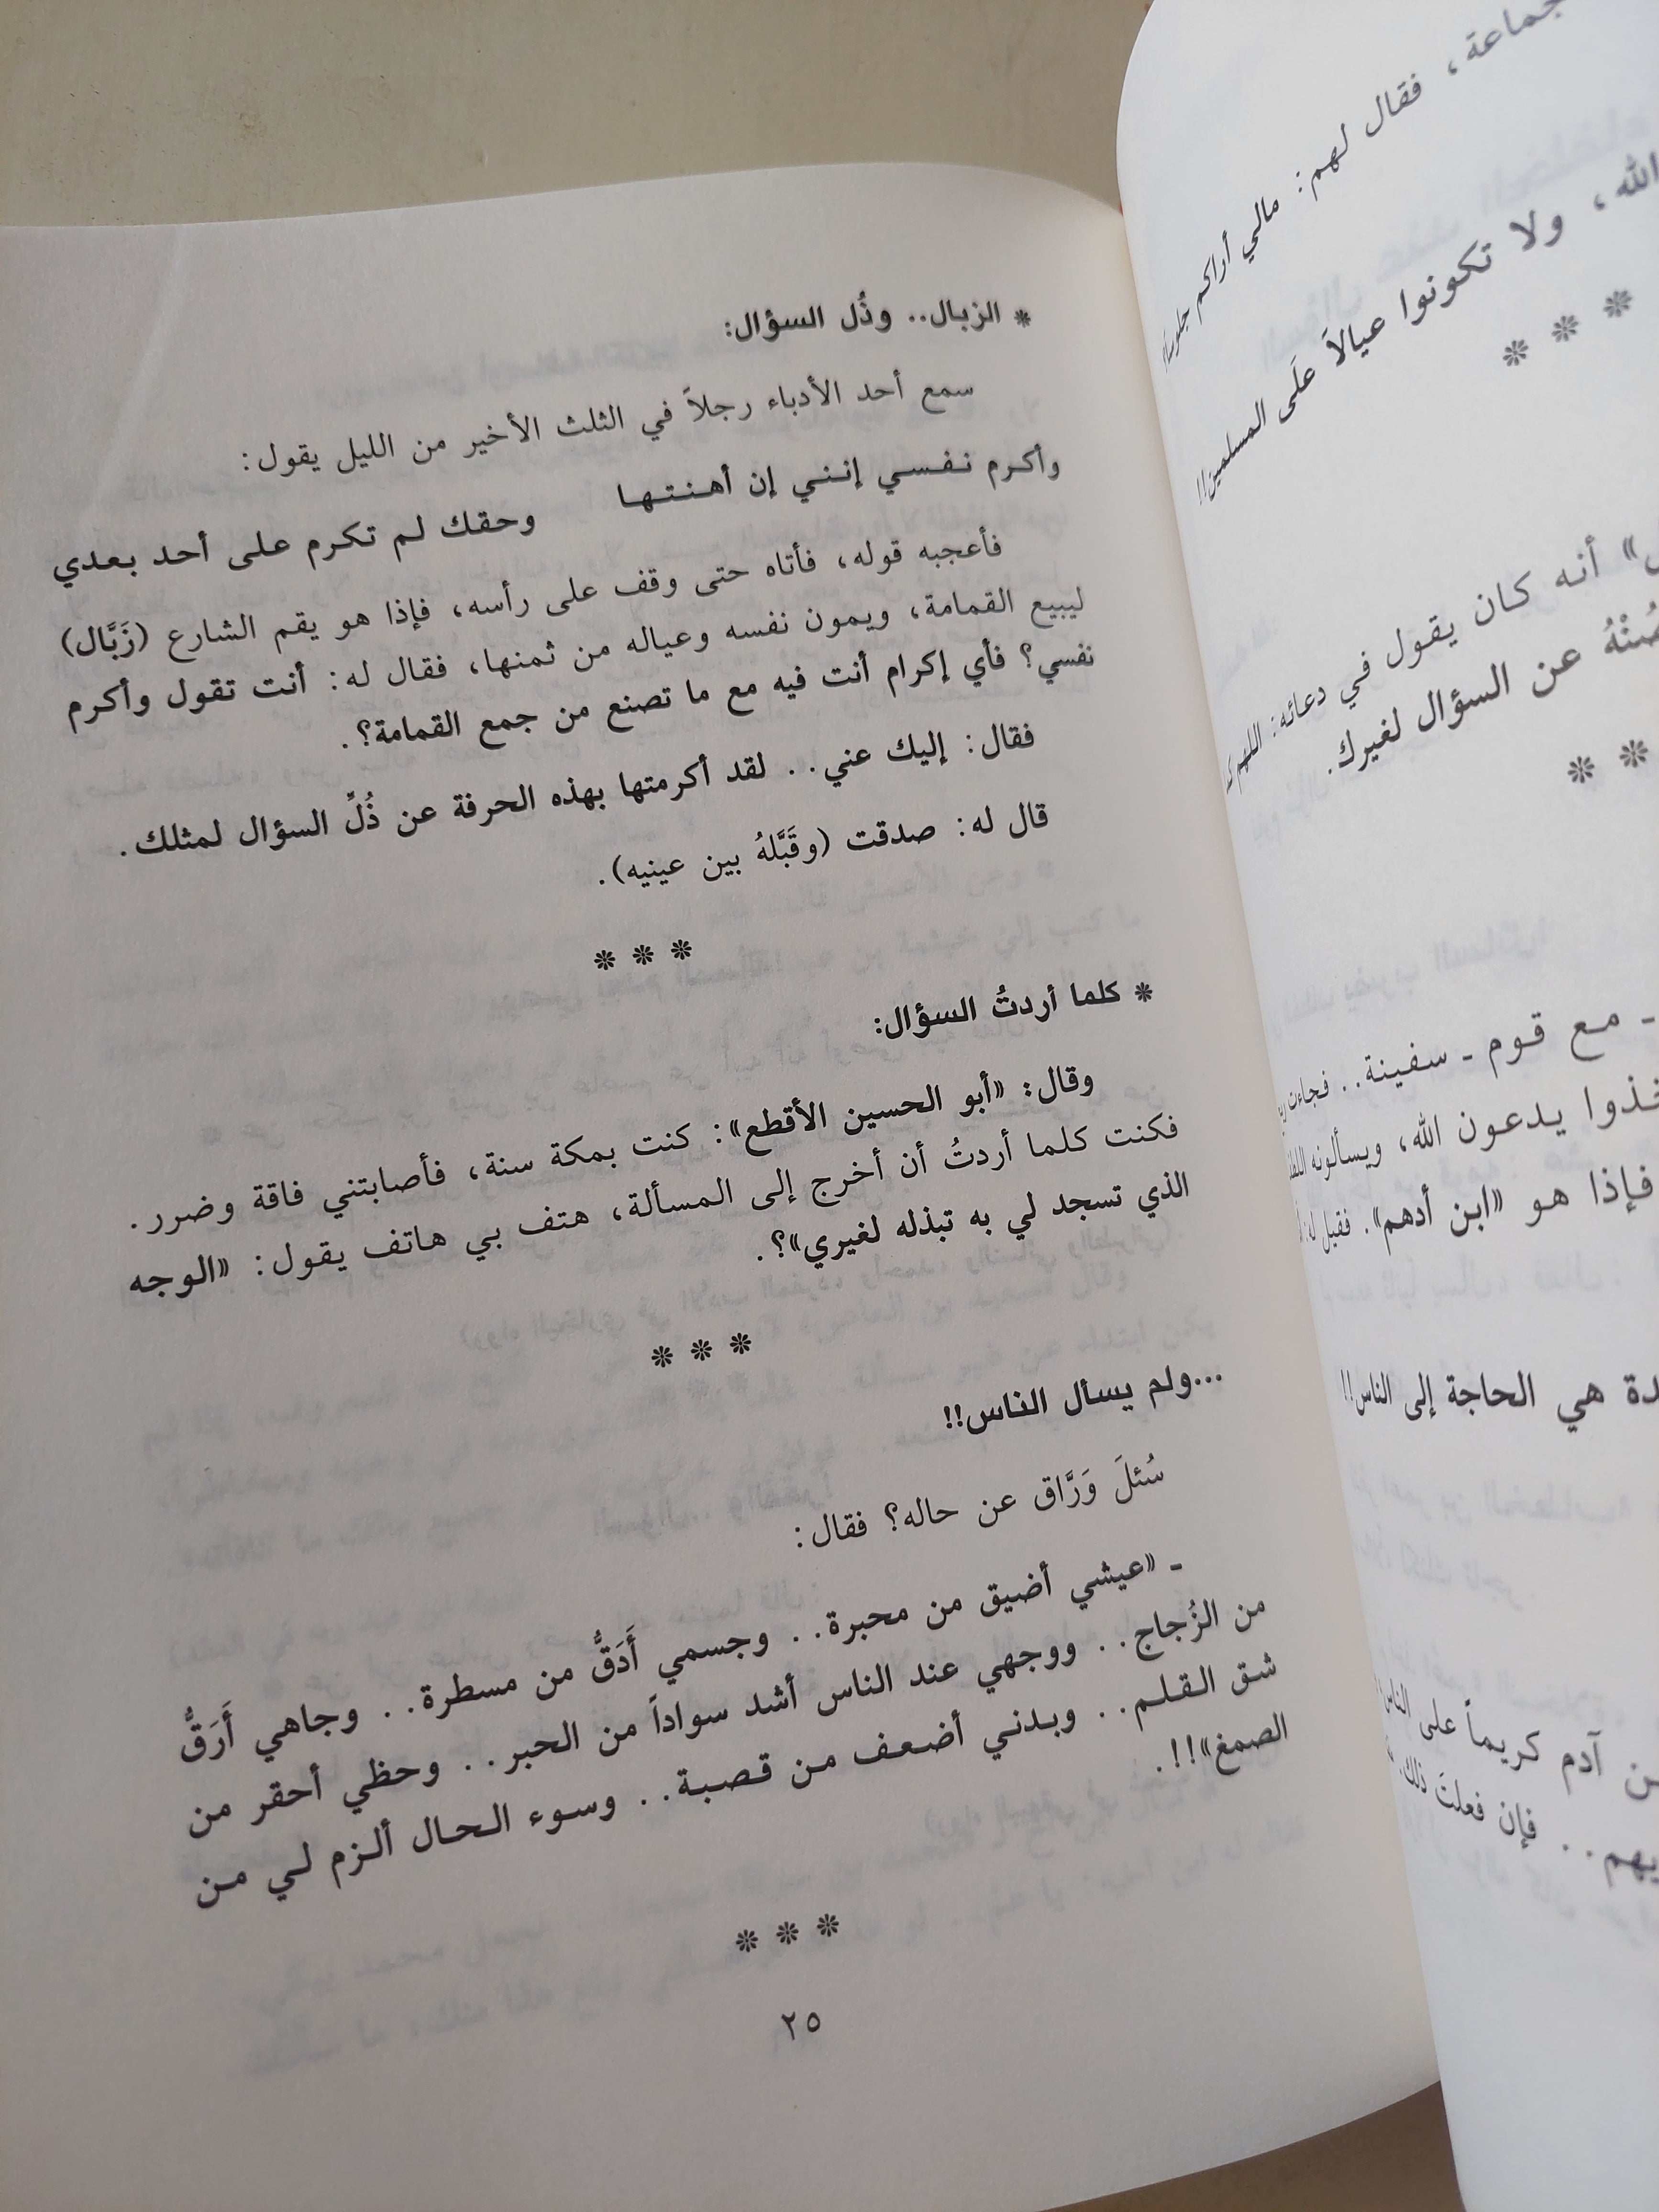 جماعة، فقال لهم: مالي أراكم جلوساً
الله، ولا تكونوا عيالاً علَى المسلمين!!
* * *
أنه كان يقول في دعائه: اللهم
صُنْهُ عن السؤال لغيرك.
* *
- مع قوم - سفينة.. فجاءت
يدعون الله، ويسألونه
فإذا هو «ابن أدهم». فقيل
هي الحاجة إلى الناس!!
آدم كريماً على الناس
فإن فعلتَ ذلك
* الزبال.. وذُل السؤال:
سمع أحد الأدباء رجلاً في الثلث الأخير من الليل يقول:
وأكرم نفسي إنني إن أهنتها وحقك لم تكرم على أحد بعدي
فأعجبه قوله، فأتاه حتى وقف على رأسه، فإذا هو يقم الشارع (زَبَّال)
ليبيع القمامة، ويمون نفسه وعياله من ثمنها، فقال له: أنت تقول وأكرم
نفسي؟ فأي إكرام أنت فيه مع ما تصنع من جمع القمامة؟.
فقال: إليك عني.. لقد أكرمتها بهذه الحرفة عن ذُلِّ السؤال لمثلك.
قال له: صدقت (وقَبَّلهُ بين عينيه).
* * *
* كلما أردتُ السؤال:
وقال: «أبو الحسين الأقطع»: كنت بمكة سنة، فأصابتني فاقة وضرر.
فكنت كلما أردتُ أن أخرج إلى المسألة، هتف بي هاتف يقول: «الوجه
الذي تسجد لي به تبذله لغيري»؟.
* * *
...ولم يسأل الناس!!
سُئلَ وَرَّاق عن حاله؟ فقال:
- «عيشي أضيق من محبرة.. وجسمي أَدَقُّ من مسطرة.. وجاهي أَرَقُّ
من الزُجاج.. ووجهي عند الناس أشد سواداً من الحبر.. وحظي أحقر من
شق القلم.. وبدني أضعف من قصبة.. وسوء الحال ألزم لي من
الصمغ»!!.
* * *
٢٥